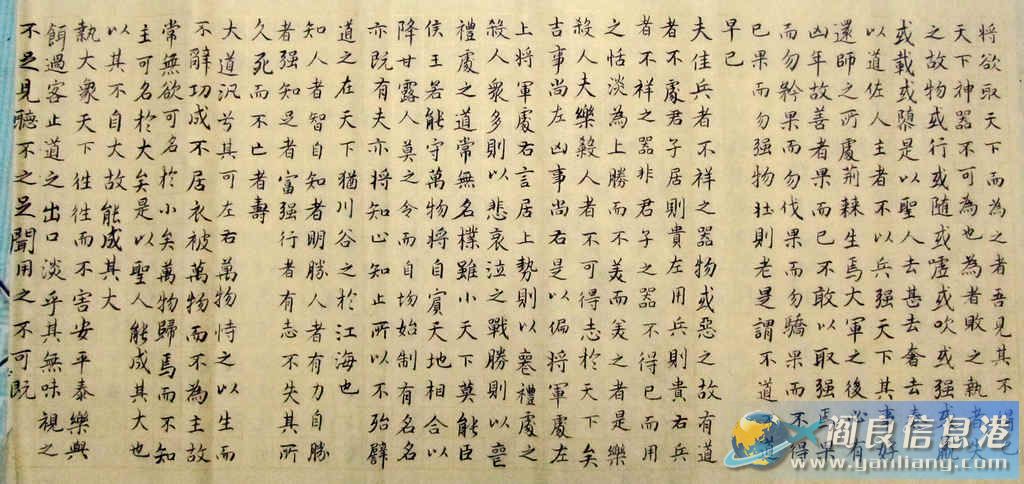 将欲取天下而為之者吾見其不得已
天下神器不可為也為者敗之執者失
之故物或行或隨或噓或吹或强或羸
或載或隳是以聖人去甚去奢去泰
以道佐人主者不以兵强天下其事好
還師之所處荊棘生焉大軍之後必有
凶年故善者果而已不敢以取强焉果
而勿矜果而勿伐果而勿驕果而不得
已果而勿强物壯則老是謂不道不道
早已
夫佳兵者不祥之器物或惡之故有道
者不處君子居則貴左用兵則貴右兵
者不祥之器非君子之器不得已而用
之恬淡為上勝而不美而美之者是樂
殺人夫樂殺人者不可得志於天下矣
吉事尚左凶事尚右是以偏將軍處左
上將軍處右言居上勢則以喪禮處之
殺人衆多則以悲哀泣之戰勝則以喪
禮處之道常無名樸雖小天下莫能臣
侯王若能守萬物將自賓天地相合以
降甘露人莫之令而自均始制有名名
亦既有夫亦将知止知止所以不殆譬
道之在天下猶川谷之於江海也
知人者智自知者明勝人者有力自勝
者强知足者富强行者有志不失其所
久死而不亡者壽
大道汎兮其可左右萬物恃之以生而
不辭功成不居衣被萬物而不為主故
常無欲可名於小矣萬物歸焉而不知
主可名於大矣是以聖人能成其大也
以其不自大故能成其大
執大象天下往往而不害安平泰樂與
餌過客止道之出口淡乎其無味視之
不足見聽不之足聞用之不可既
阎良信息港
www.yanliang.com